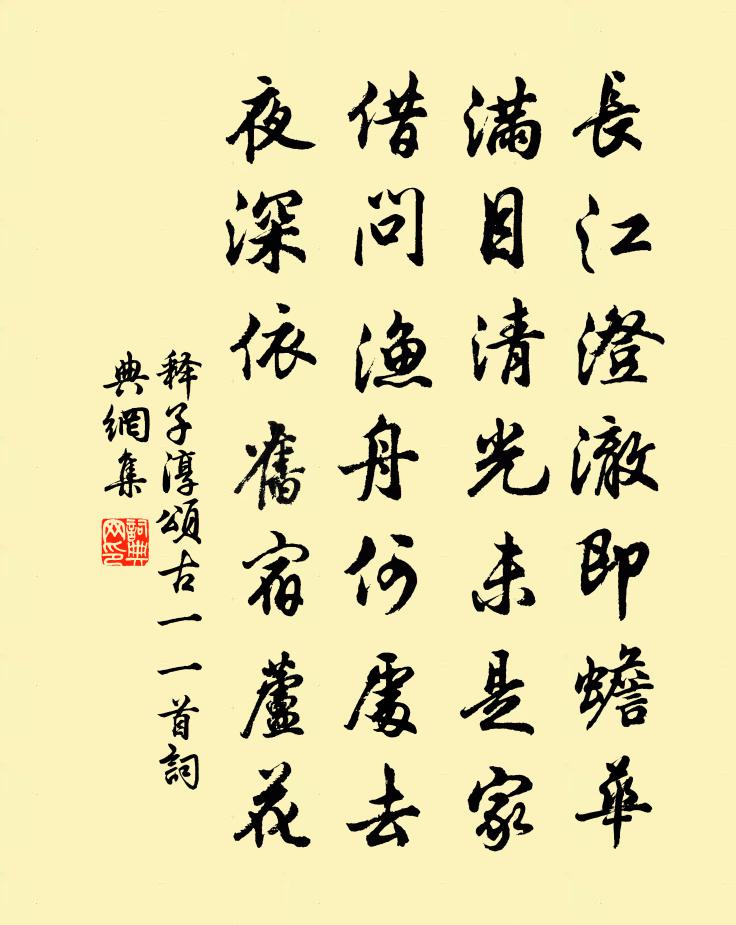 長江澄澈即蟾華
滿目清光未是家
借問漁舟何處去
夜深依舊宿蘆花
释子淳頌古一一首詞
典網集
詞典
网印